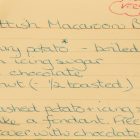 ttish Macaroon B
potato - boiled
icing sugar
chocolate
nut (½ toasted)
shed potato + icing
ke a fondant. Fre
over with chocolate